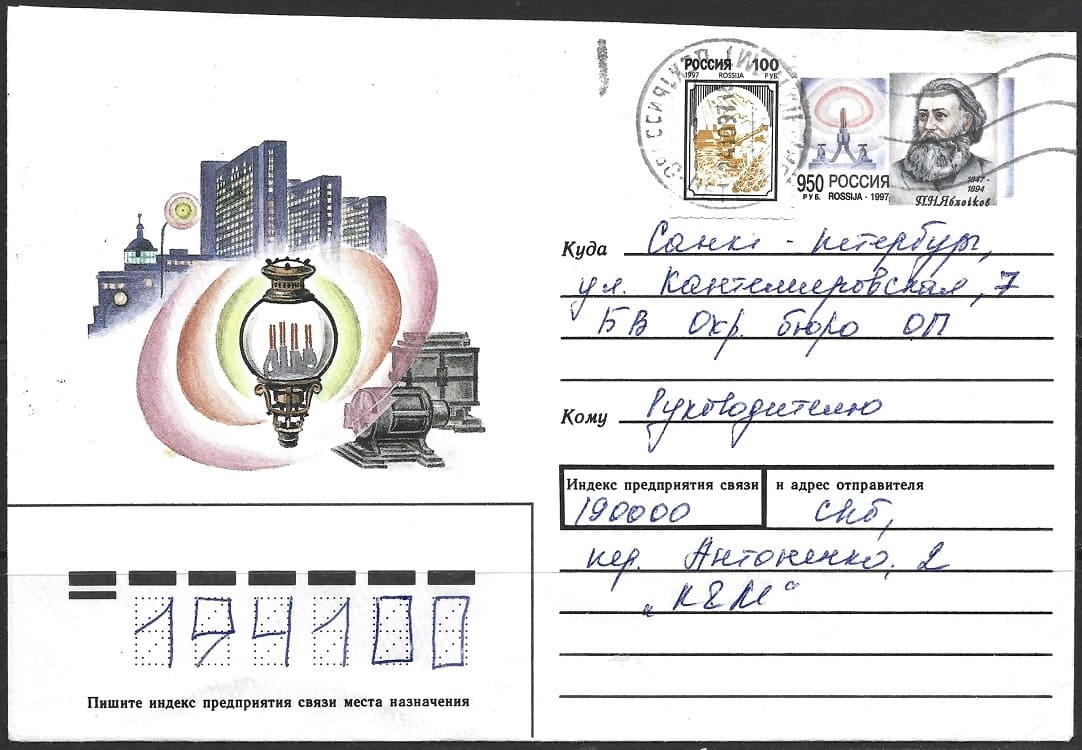 РОССИЯ 100
1997 ROSSIJA РУБ.
950 РОССИЯ
РУБ. ROSSIJA · 1997
1847 -
1894
П.Н.Яблочков
Куда Санкт - петербург,
ул. Кантемировская, 7
БВ Охр. бюро ОП
Кому Руководителю
Индекс предприятия связи и адрес отправителя
190000 СПб,
пер. Антоненко, 2
194100
Пишите индекс предприятия связи места назначения